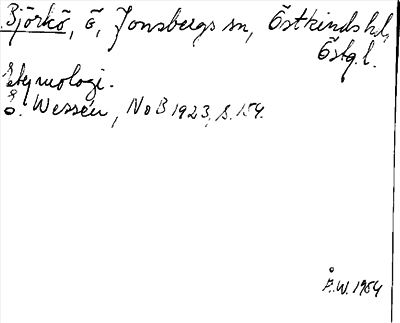 Björkö, ö, Jonsbergs sn, Östkinds hd,
Östg.l.
Etymologi.
E. Wessén, NoB 1923, s. 154.
Å.W. 1954